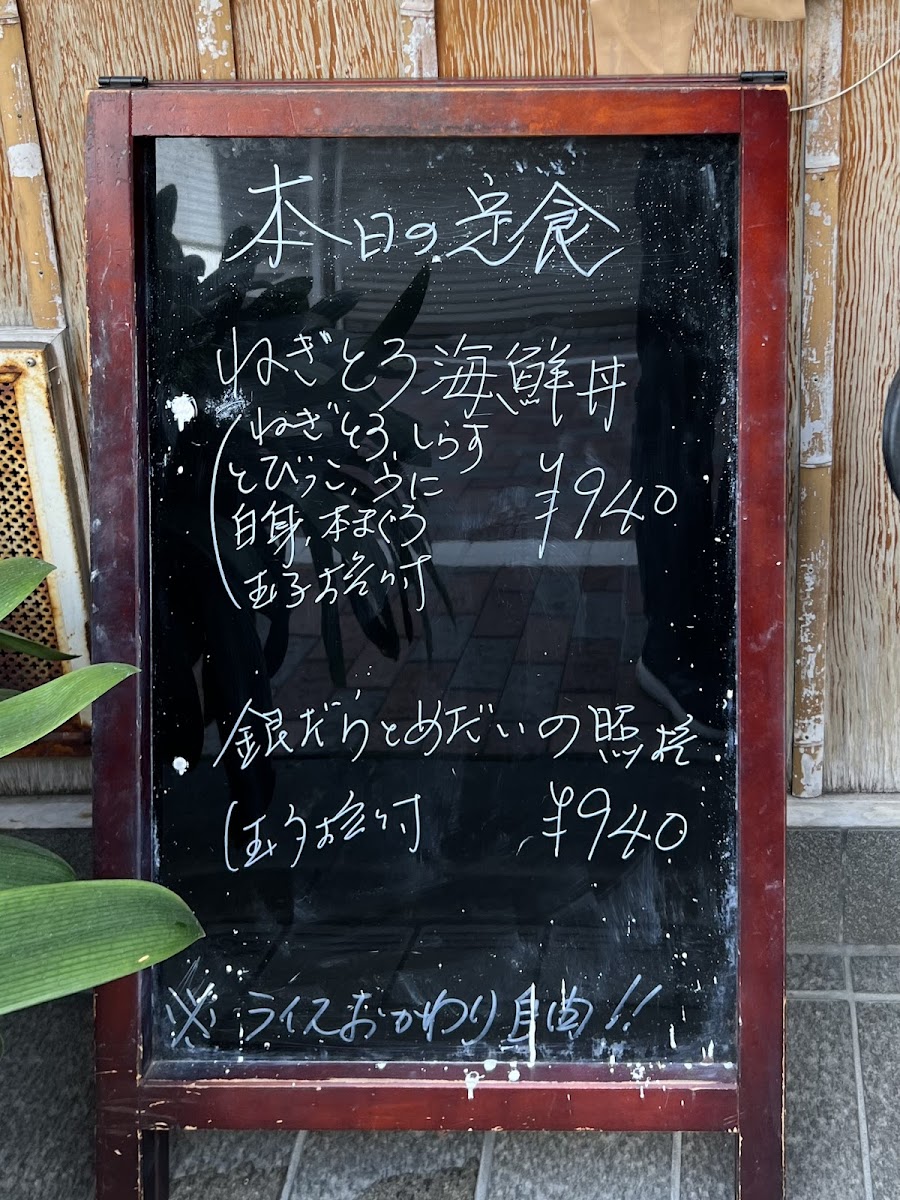 本日の定食
ねぎとろ海鮮丼
(ねぎとろ、しらす
とびっこ、うに
白身、本まぐろ
玉子焼付
¥940
銀だらとめだいの照焼
(玉子焼付
¥940
※ライスおかわり自由!!